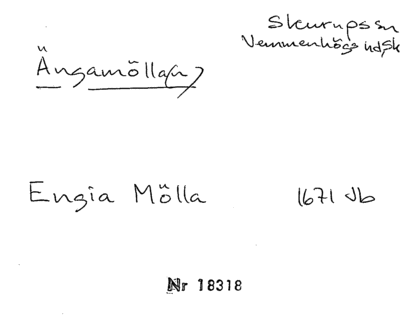 Skurups sn
Vemmenhögs hd, Sk
Ängamölla(n)
Engia Mölla 1671 Jb
Nr 18318